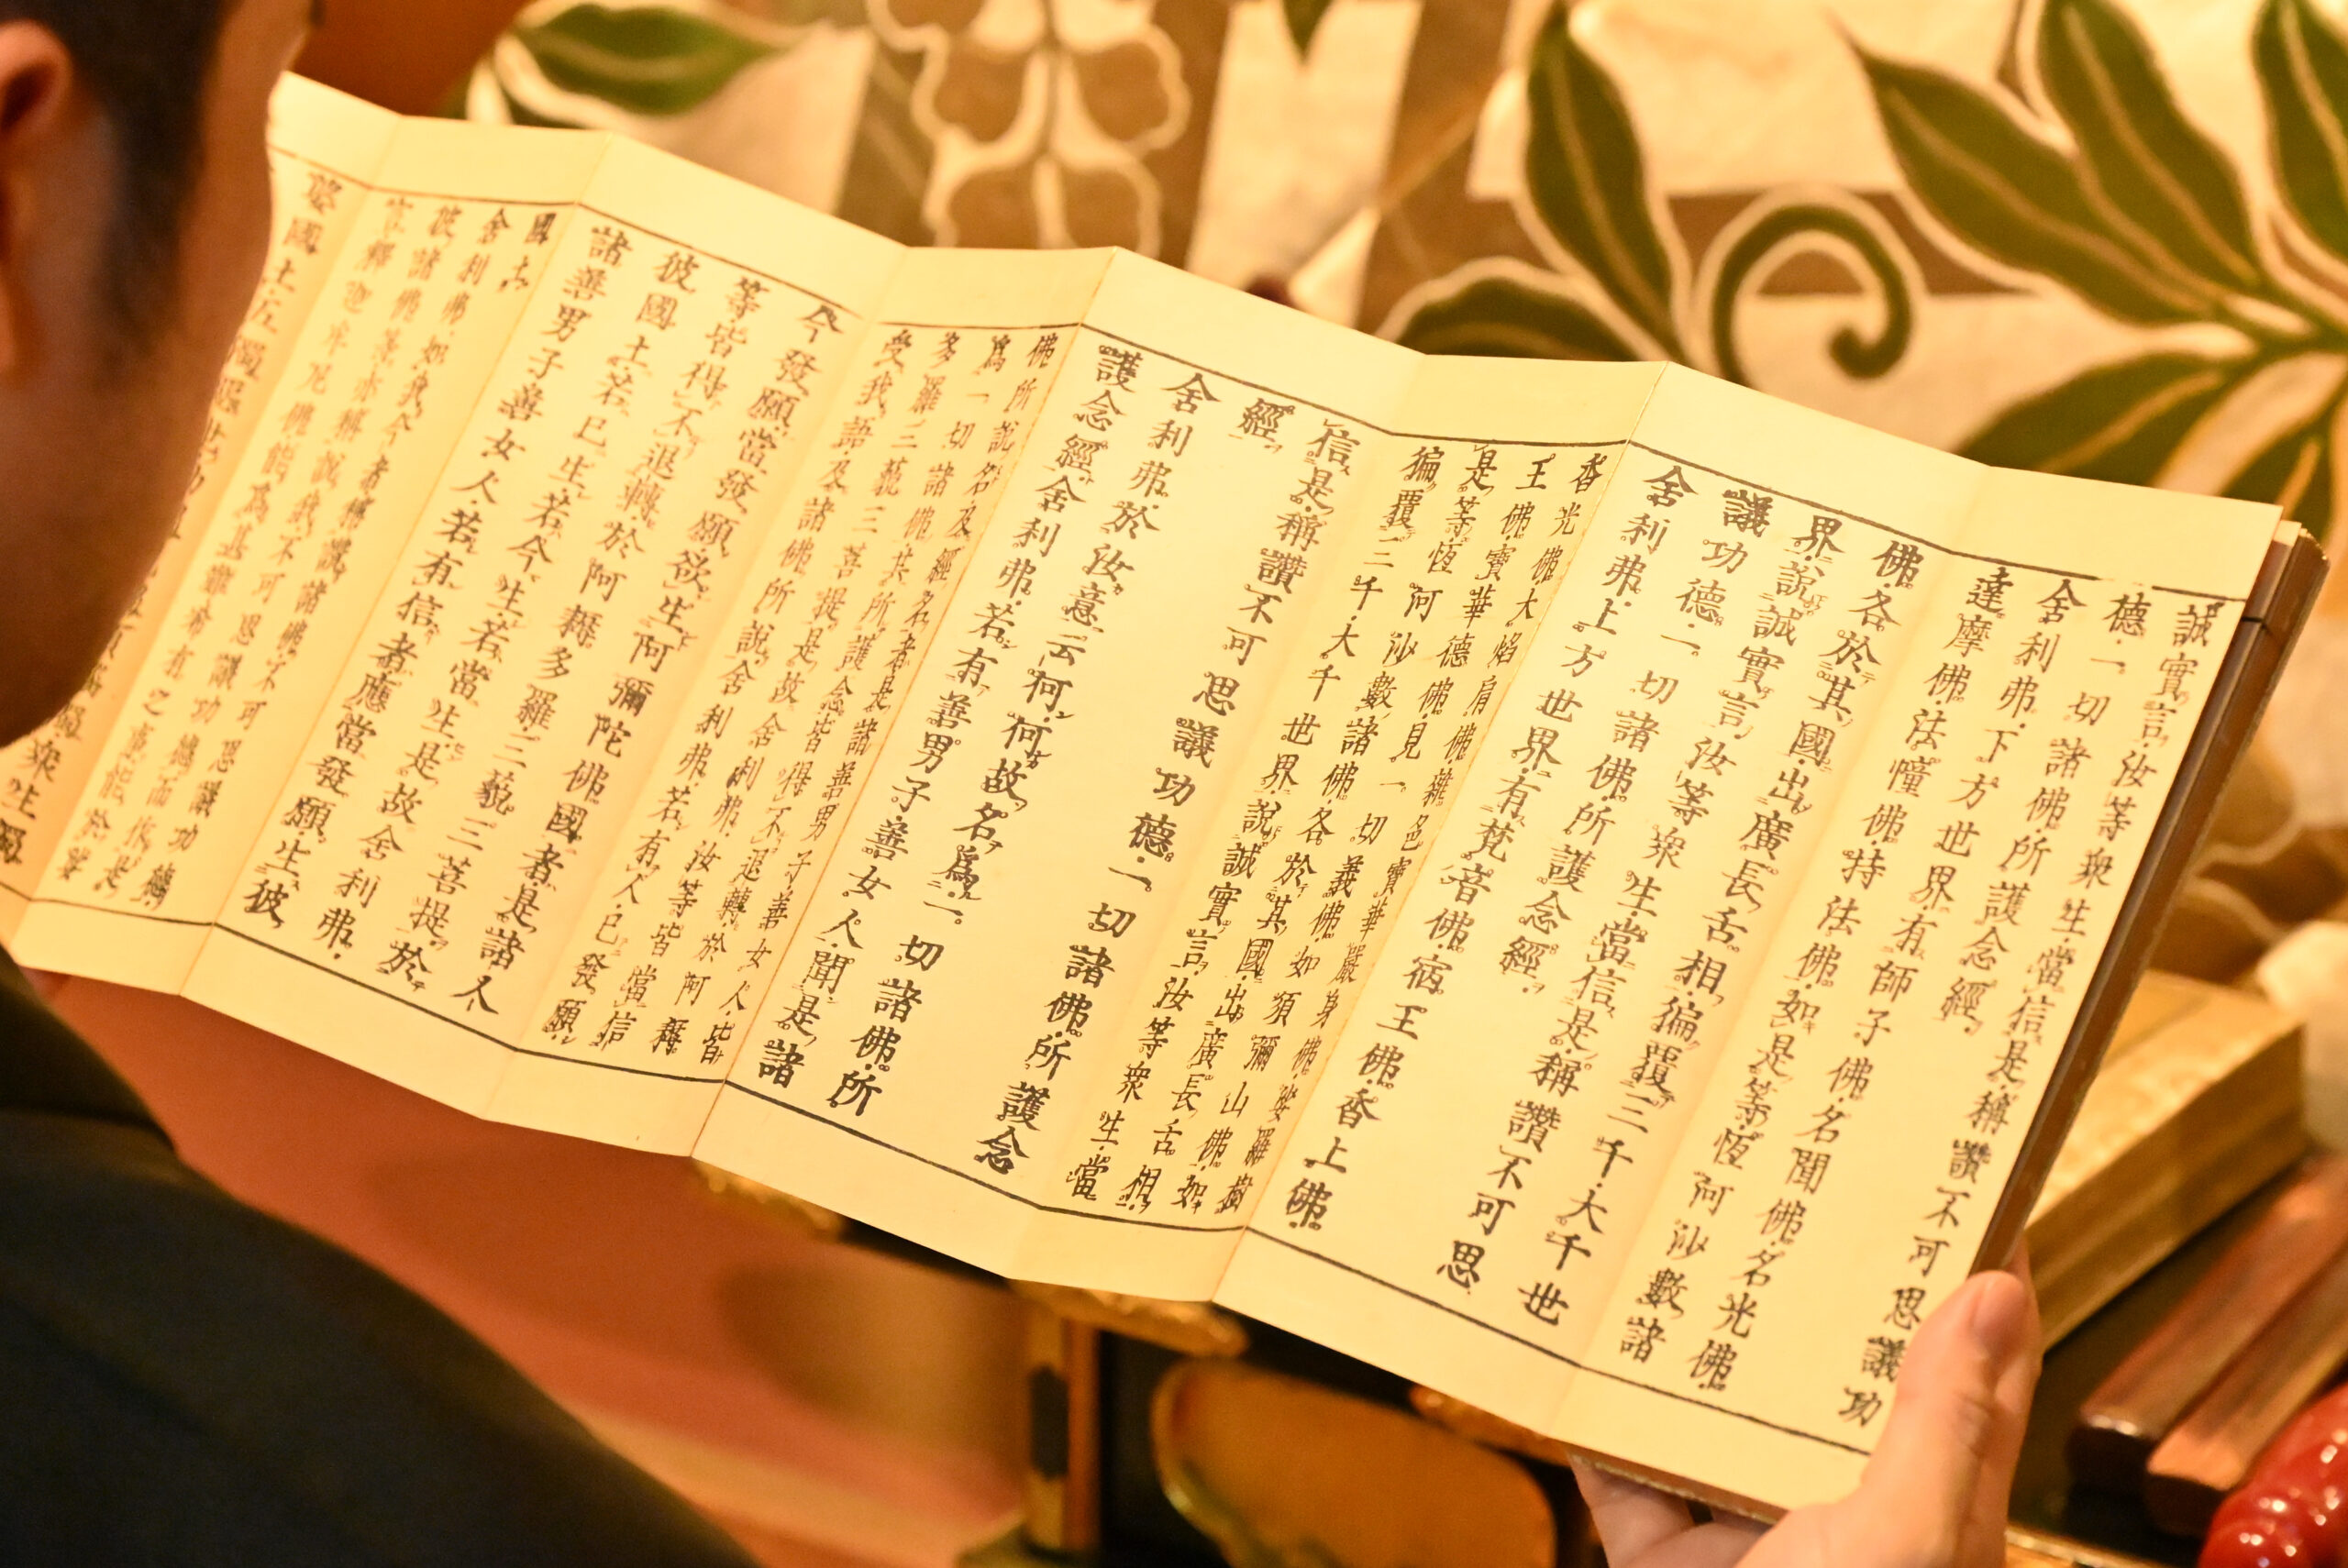 誠實言汝等衆生當信是稱讚不可思議功
德一切諸佛所護念經
舍利弗下方世界有師子佛名聞佛名光佛
達摩佛法幢佛持法佛如是等恆河沙數諸
佛各於其國出廣長舌相徧覆三千大千世
界說誠實言汝等衆生當信是稱讚不可思
議功德一切諸佛所護念經
舍利弗上方世界有梵音佛宿王佛香上佛
香光佛大焰肩佛雜色寶華嚴身佛娑羅樹
王佛寶華德佛見一切義佛如須彌山佛如
是等恆河沙數諸佛各於其國出廣長舌相
徧覆三千大千世界說誠實言汝等衆生當
信是稱讚不可思議功德一切諸佛所護念
經
舍利弗於汝意云何何故名爲一切諸佛所
護念經舍利弗若有善男子善女人聞是諸
佛所說名及經名者是諸善男子善女人皆
爲一切諸佛共所護念皆得不退轉於阿耨
多羅三藐三菩提是故舍利弗汝等皆當信
受我語及諸佛所說舍利弗若有人已發願
今發願當發願欲生阿彌陀佛國者是諸人
等皆得不退轉於阿耨多羅三藐三菩提於
彼國土若已生若今生若當生是故舍利弗
諸善男子善女人若有信者應當發願生彼
國土
舍利弗如我今者稱讚諸佛不可思議功德
彼諸佛等亦稱說我不可思議功德而作是
言釋迦牟尼佛能爲甚難希有之事能於娑
婆國土五濁惡世劫濁 衆生濁